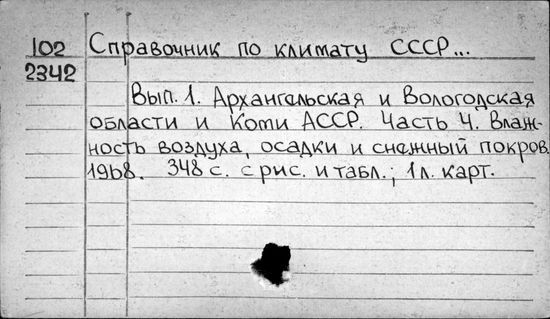 102 Справочник по климату СССР...
2342
Вып. 1. Архангельская и Вологодская
области и Коми АССР. Часть 4. Влаж-
ность воздуха, осадки и снежный покров.
1968. 348 с. с рис. и табл.; 1 л. карт.